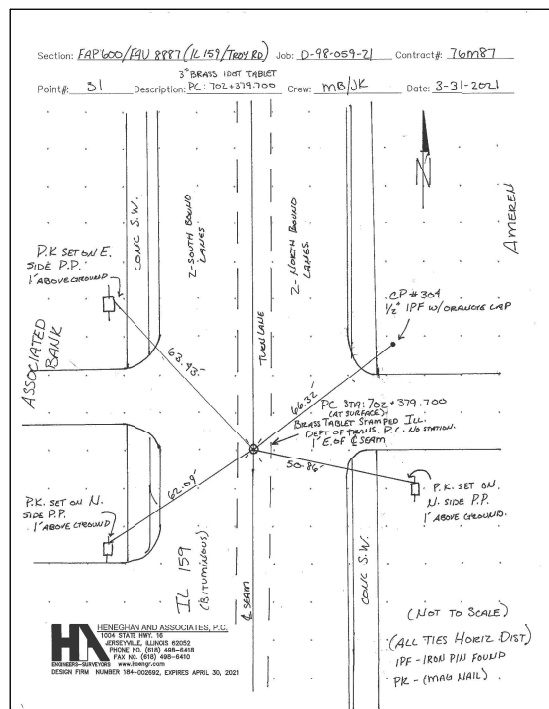 Section: FAP 600/FAU 8887 (IL 159/TROY RD) Job: D-98-059-21 Contract#: 76M87
3" BRASS IDOT TABLET
Point#: 31 Description: PC: 702+379.700 Crew: MB/JK Date: 3-31-2021
CONC S.W.
2-SOUTH BOUND
LANES
2-NORTH BOUND
LANES
N
AMEREN
P.K SET ON E.
SIDE P.P.
1' ABOVE GROUND
CP #304
1/2" IPF W/ORANGE CAP
ASSOCIATED
BANK
TURN LANE
63.43'
66.32'
PC STA: 702+379.700
(AT SURFACE)
BRASS TABLET STAMPED ILL.
DEPT OF TRANS. P.C. NO STATION.
1' E. OF ℄ SEAM
50.86'
62.09'
P.K. SET ON N.
SIDE P.P.
1' ABOVE GROUND
P.K. SET ON
N. SIDE P.P.
1' ABOVE GROUND.
IL 159
(BITUMINOUS)
℄ SEAM
CONC S.W.
(NOT TO SCALE)
(ALL TIES HORIZ DIST)
IPF - IRON PIN FOUND
PK - (MAG NAIL)
HA
HENEGHAN AND ASSOCIATES, P.C.
1004 STATE HWY. 16
JERSEYVILLE, ILLINOIS 62052
PHONE NO. (618) 498-6418
FAX NO. (618) 498-6410
ENGINEERS-SURVEYORS www.haengr.com
DESIGN FIRM NUMBER 184-002692, EXPIRES APRIL 30, 2021